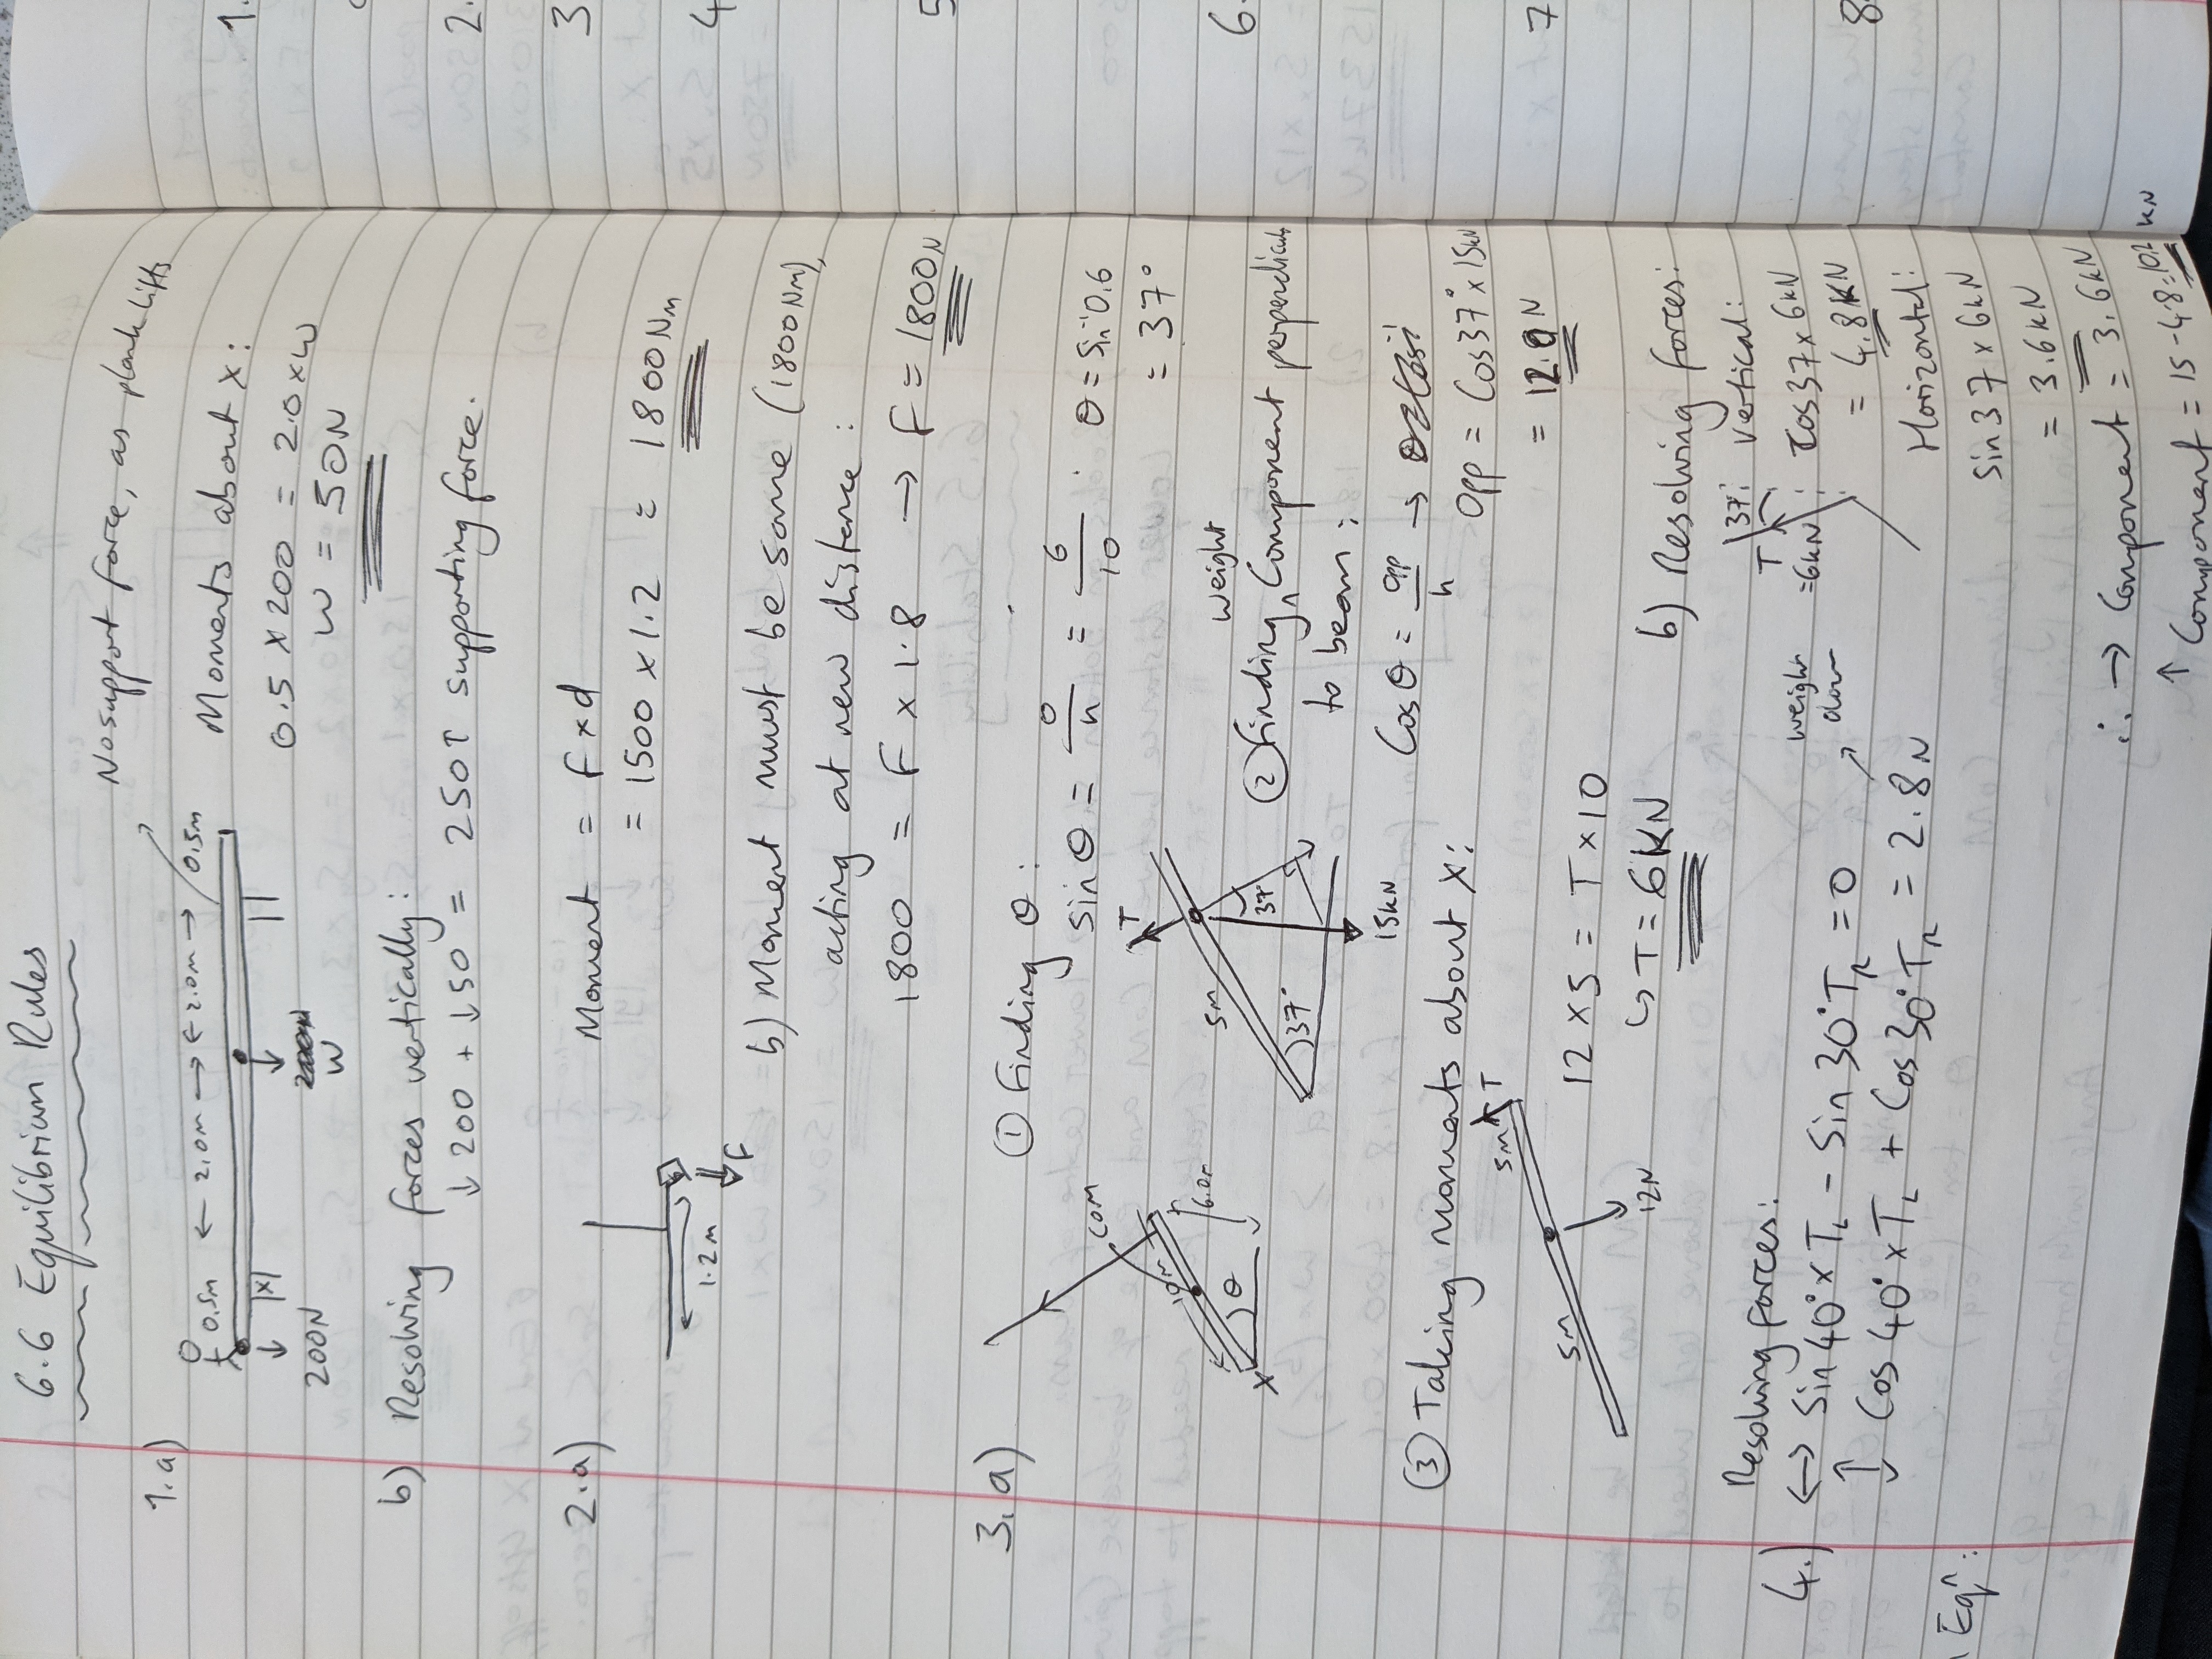 6.6 Equilibrium Rules
No support force, as plank lifts
1.a)
0.5m ← 2.0m → ← 2.0m → 0.5m
Moments about X:
|X|
0.5 × 200 = 2.0 × W
200N
W
W = 50N
b) Resolving forces vertically:
↓200 + ↓50 = 250↑ supporting force.
2.a)
Moment = F × d
= 1500 × 1.2 = 1800Nm
1.2m
F
b) Moment must be same (1800Nm),
acting at new distance:
1800 = F × 1.8 → F = 1800N
3.a)
① Finding θ:
Sinθ = o/h = 6/10 ∴ θ = Sin⁻¹0.6
= 37°
COM
10m
θ
X
T
5m
37°
37°
15kN
weight
② Finding ^ Component perpendicular
to beam:
Cosθ = opp/h →
Opp = Cos37° × 15kN
= 12.0N
③ Taking moments about X:
5m
5m
T
12N
12 × 5 = T × 10
↳ T = 6kN
b) Resolving forces:
T
= 6kN
37°
Vertical:
Cos37 × 6kN
= 4.8kN
Horizontal:
Sin37 × 6kN
= 3.6kN
∴ → Component = 3.6kN
↑ Component = 15 - 4.8 = 10.2 kN
4.)
Resolving forces:
↔ Sin40° × T_L - Sin30° T_R = 0
weight
down
↕ Cos40° × T_L + Cos30° T_R = 2.8N
Eqn:
1.
2.
3
4
5
6.
7
8